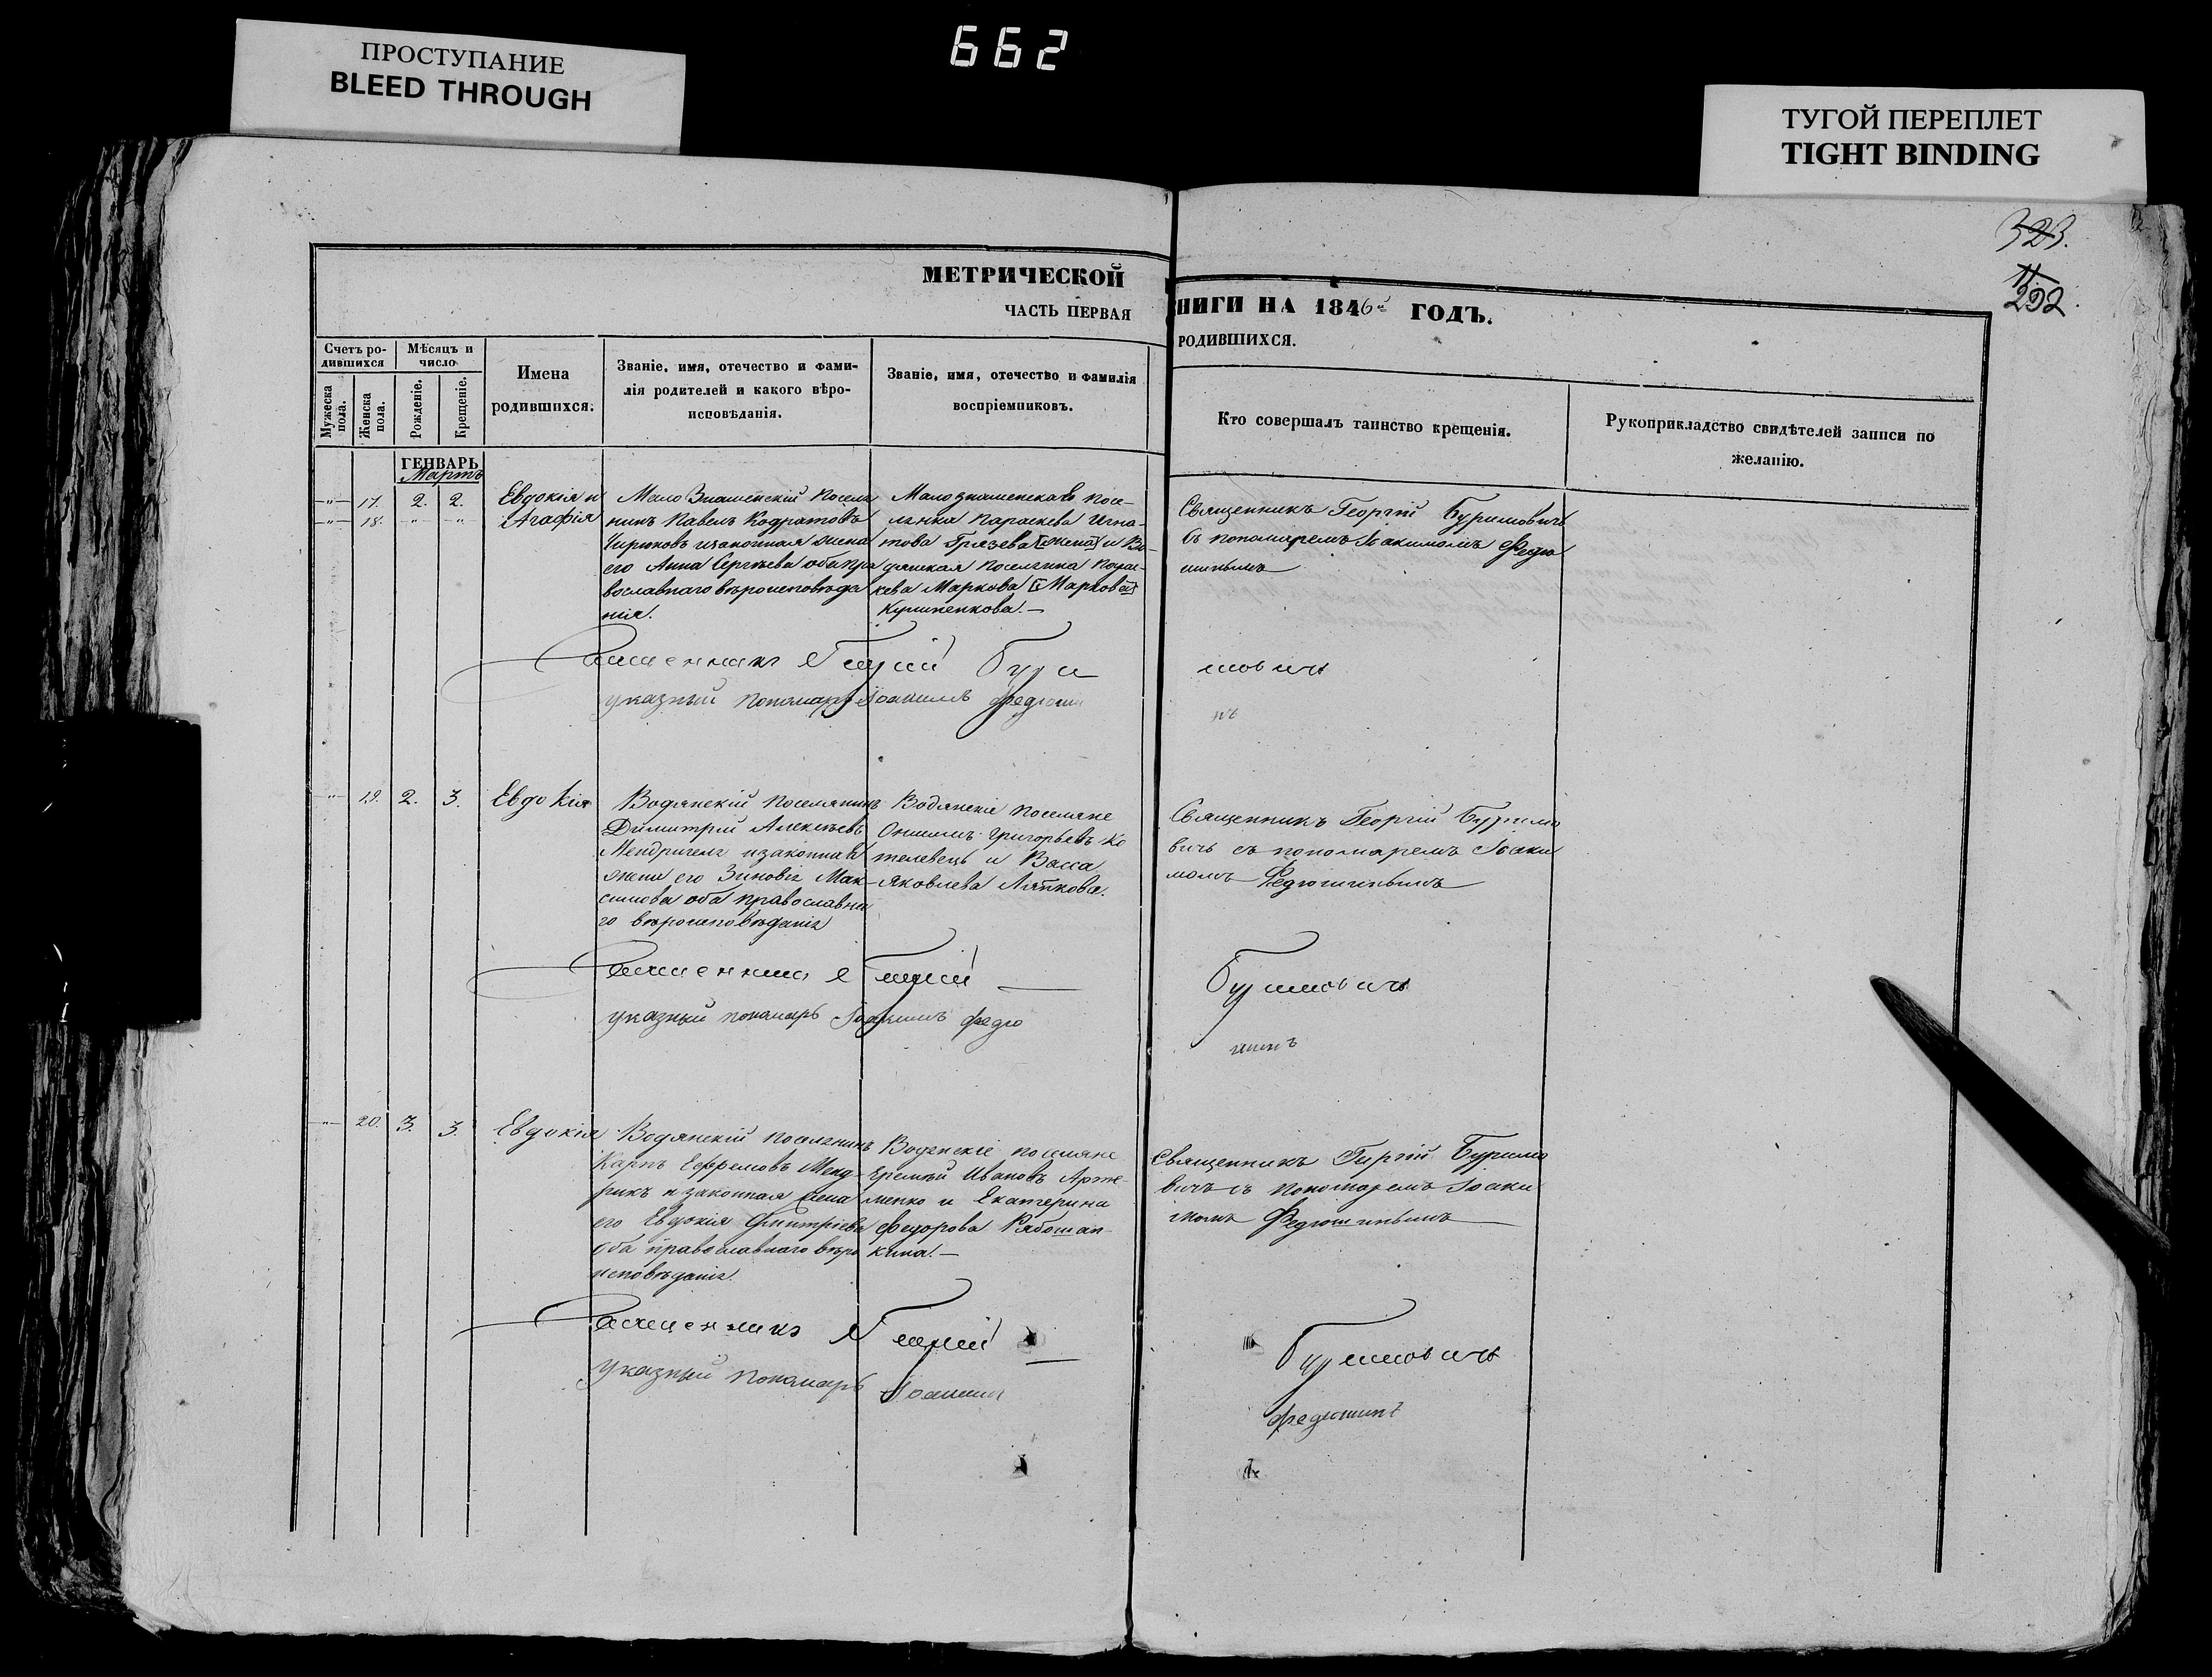 662
ПРОСТУПАНИЕ
BLEED THROUGH
ТУГОЙ ПЕРЕПЛЕТ
TIGHT BINDING
323.
292.
МЕТРИЧЕСКОЙ
НИГИ НА 1846й ГОДЪ.
ЧАСТЬ ПЕРВАЯ
РОДИВШИХСЯ.
Счетъ ро-
дившихся
Мужеска
пола.
Женска
пола.
Мѣсяцъ и
число
Рожденіе.
Крещеніе.
Имена
родившихся.
Званіе, имя, отечество и фами-
лія родителей и какого вѣро-
исповѣданія.
Званіе, имя, отечество и фамилія
воспріемниковъ.
Кто совершалъ таинство крещенія.
Рукоприкладство свидѣтелей записи по
желанію.
ГЕНВАРЬ
Мартъ
17. 2. 2.
18.
Евдокія и
Агафія
Мало Знаменскій Поселя
нинъ Павелъ Кодратовъ
Чирюковъ изаконная жена
его Анна Сергѣева оба пра
вославнаго вѣроисповѣда
нія.
Малознаменская посе-
лянка Параскева Игна-
това Грязева и Во-
дянская Поселянка Парас-
кева Маркова
Священникъ Георгій Буримовичъ
съ пономаремъ Іоакимомъ Федю
шинымъ
Священникъ Георгій Бури
мовичъ
указный пономарь Іоакимъ Федюши
нъ
19. 2. 3.
Евдокія
Водянскій поселянинъ
Димитрій Алексѣевъ
изаконная
жена его Зиновія Мак-
симова оба православна
го вѣроисповѣданія
Водянскіе поселяне
Онисимъ Григорьевъ Ко
телевецъ и Васса
Яковлева
Священникъ Георгій Буримо
вичъ съ пономаремъ Іоаки
момъ Федюшинымъ
Священникъ Георгій
Буримовичъ
указный пономарь Іоакимъ Федю
шинъ
20. 3. 3.
Евдокія
Водянскій поселянинъ
Карпъ Ефремовъ Менд-
рикъ и законная жена
его Евдокія Дмитріева
оба православнаго вѣро
исповѣданія.
Водянскіе поселяне
Еремѣй Ивановъ Арте-
менко и Екатерина
Федорова Рябошап-
кина.
Священникъ Георгій Буримо
вичъ съ пономаремъ Іоаки
момъ Федюшинымъ
Священникъ Георгій
Буримовичъ
указный пономарь Іоакимъ
Федюшинъ